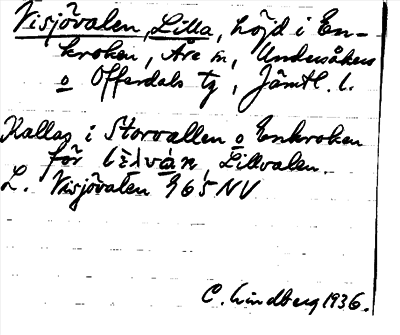 Visjövalen, Lilla, höjd i En-
kroken, Åre sn, Undersåkers
o Offerdals tg, Jämtl. l.
Kallas i Storvallen o Enkroken
för lilván, Lillvalen.
L. Visjövalen 965 NV
C. Lindberg 1936.